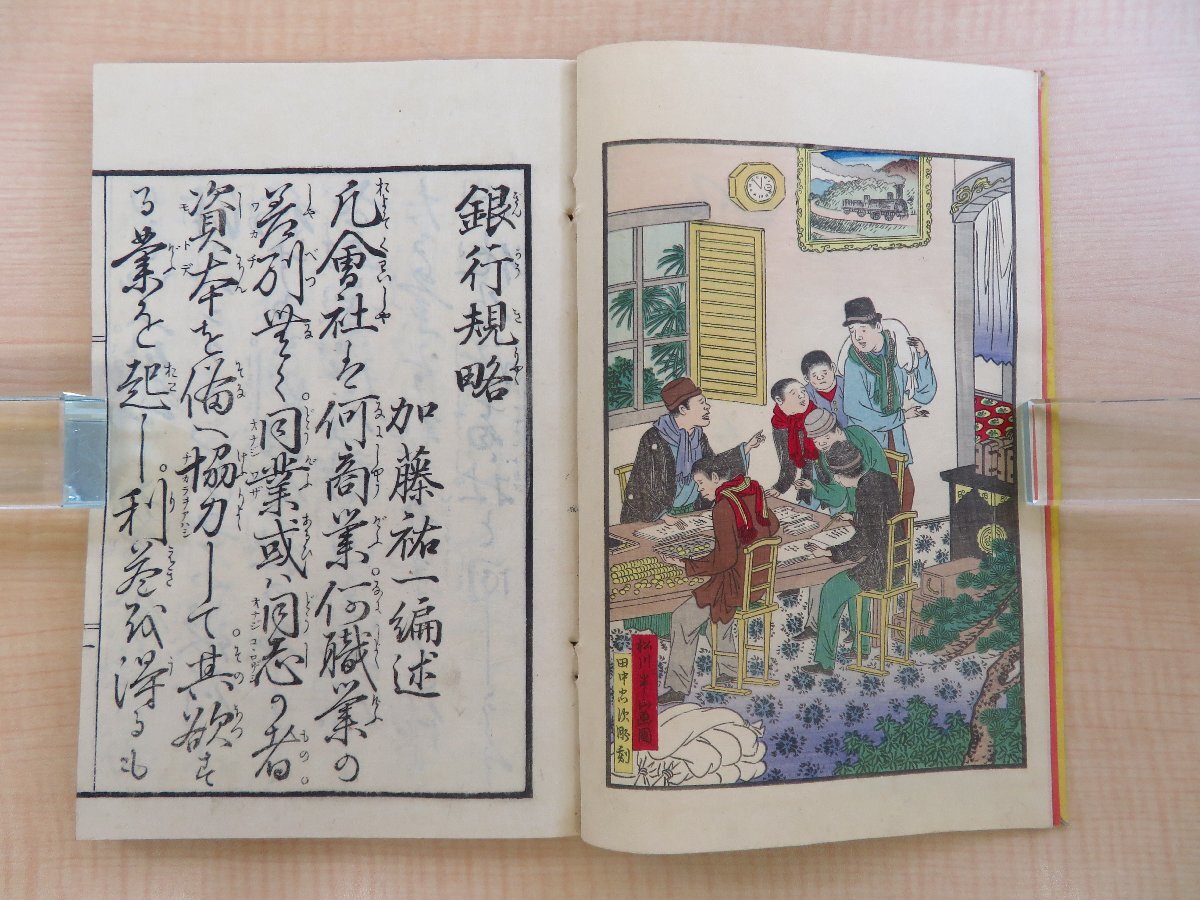 松川半山画圖
田中忠次彫刻
銀行規略
加藤祐一編述
凡會社は何商業。何職業の
差別無く。同業或ハ同志の者。
資本を備へ協力して。其欲す
る業を起し。利益を得るも